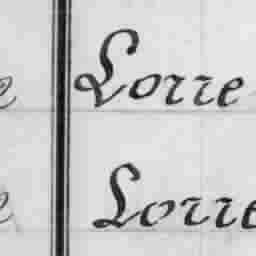 Lorre
Lorre